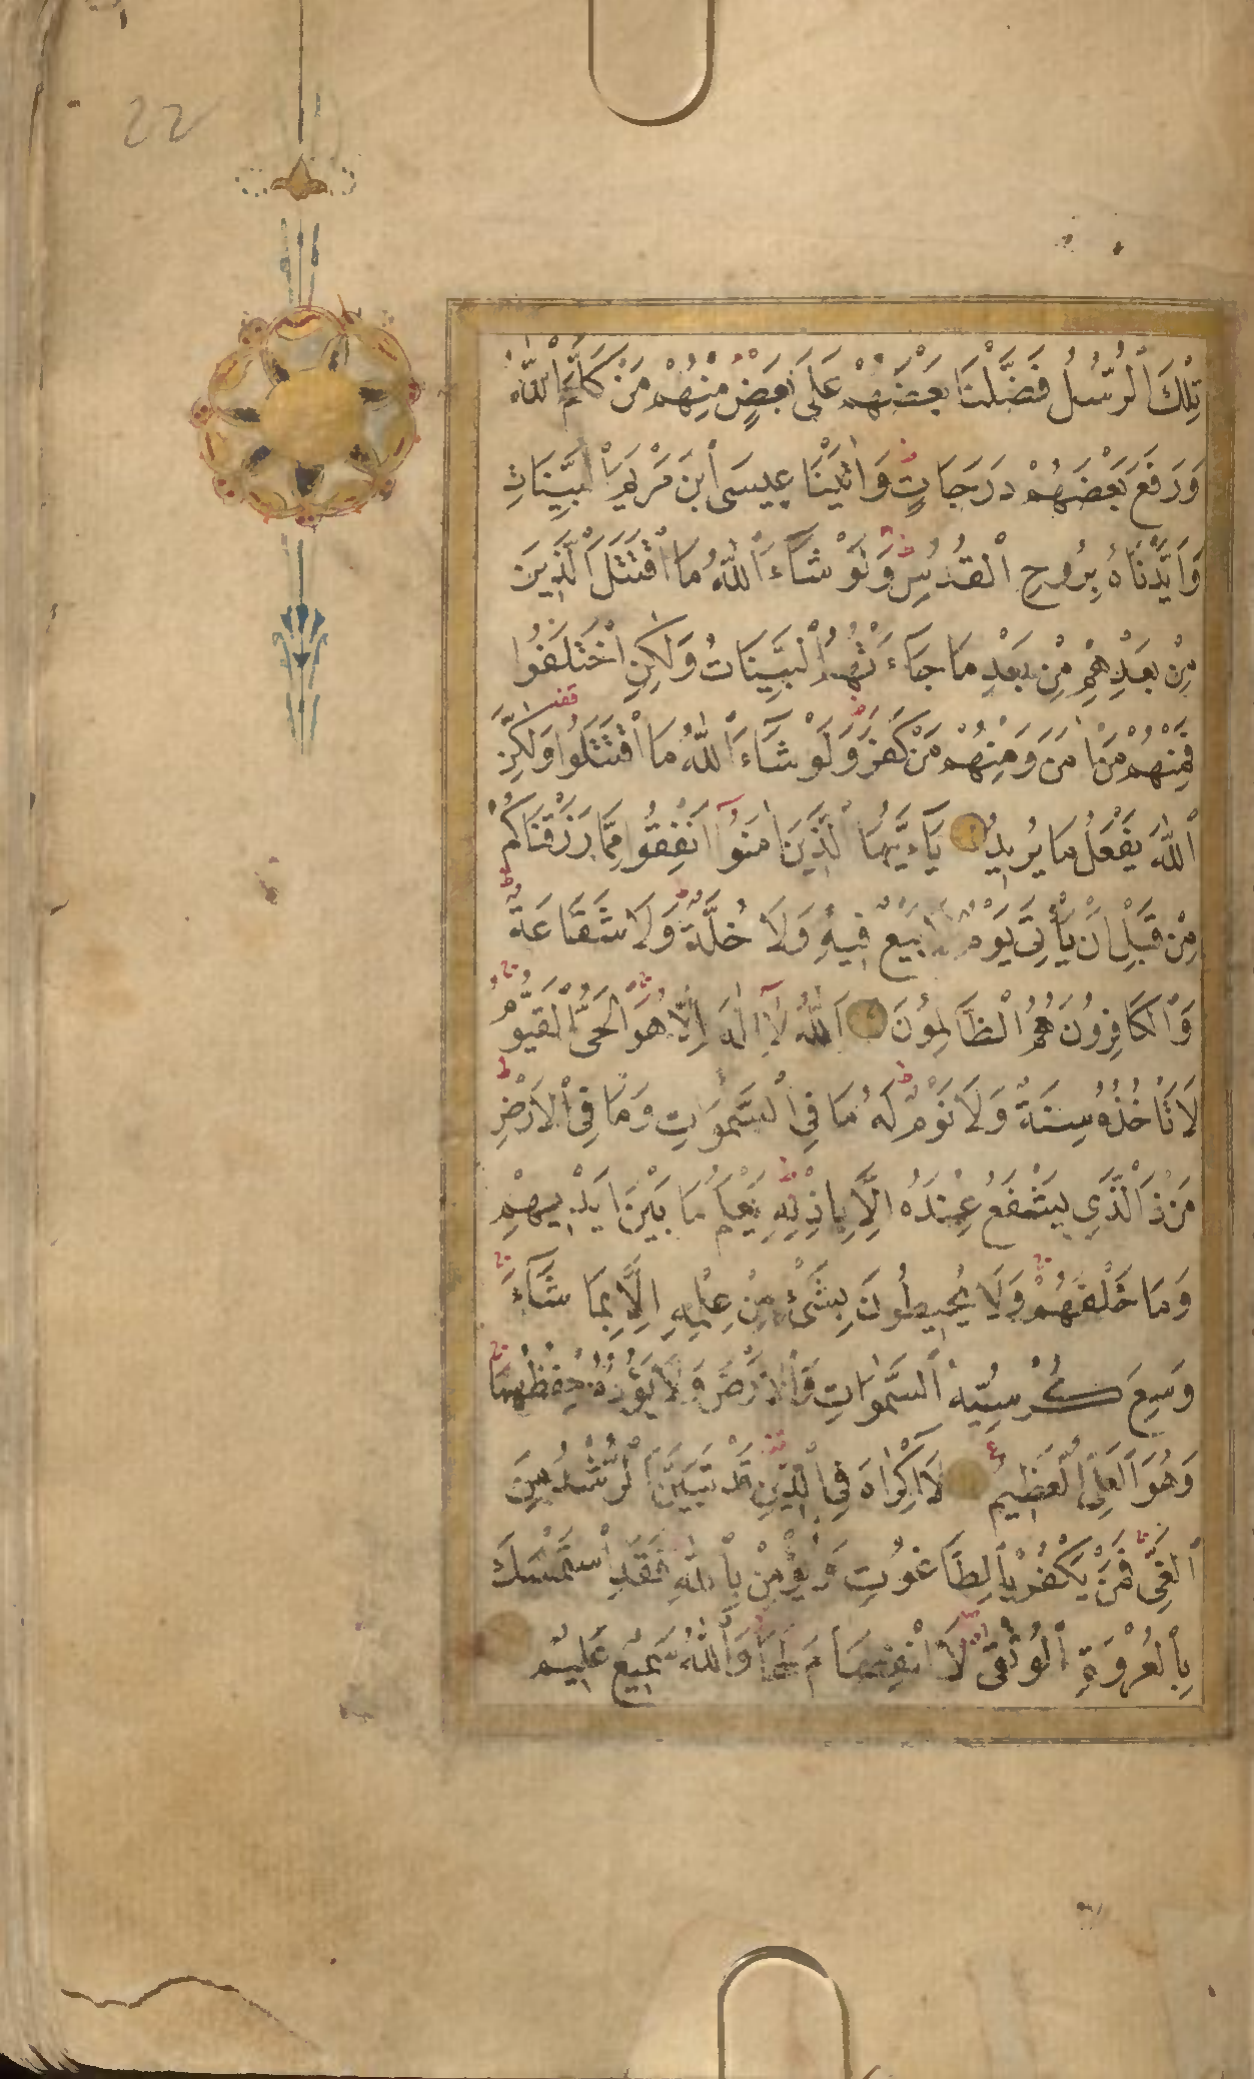 22
تِلْكَ ٱلرُّسُلُ فَضَّلْنَا بَعْضَهُمْ عَلَى بَعْضٍ مِنْهُمْ مَنْ كَلَّمَ ٱللّٰهُ
وَرَفَعَ بَعْضَهُمْ دَرَجَاتٍ ط وَاٰتَيْنَا عِيسَى ٱبْنَ مَرْيَمَ ٱلْبَيِّنَاتِ
وَاَيَّدْنَاهُ بِرُوحِ ٱلْقُدُسِ ط وَلَوْ شَآءَ ٱللّٰهُ مَا ٱقْتَتَلَ ٱلَّذِينَ
مِنْ بَعْدِهِمْ مِنْ بَعْدِ مَا جَآءَتْهُمُ ٱلْبَيِّنَاتُ وَلٰكِنِ ٱخْتَلَفُوا
فَمِنْهُمْ مَنْ اٰمَنَ وَمِنْهُمْ مَنْ كَفَرَ ط وَلَوْ شَآءَ ٱللّٰهُ مَا ٱقْتَتَلُوا قف وَلٰكِنَّ
ٱللّٰهَ يَفْعَلُ مَا يُرِيدُ يَآءَيُّهَا ٱلَّذِينَ اٰمَنُوٓا اَنْفِقُوا مِمَّا رَزَقْنَاكُمْ
مِنْ قَبْلِ اَنْ يَأْتِيَ يَوْمٌ لَا بَيْعٌ فِيهِ وَلَا خُلَّةٌ وَلَا شَفَاعَةٌ ط
وَٱلْكَافِرُونَ هُمُ ٱلظَّالِمُونَ اَللّٰهُ لَآ اِلٰهَ اِلَّا هُوَ ج ٱلْحَىُّ ٱلْقَيُّومُ ج
لَا تَأْخُذُهُ سِنَةٌ وَلَا نَوْمٌ ط لَهُ مَا فِى ٱلسَّمٰوَاتِ وَمَا فِى ٱلْاَرْضِ ط
مَنْ ذَا ٱلَّذِي يَشْفَعُ عِنْدَهُ اِلَّا بِاِذْنِهِ ط يَعْلَمُ مَا بَيْنَ اَيْدِيهِمْ
وَمَا خَلْفَهُمْ ج وَلَا يُحِيطُونَ بِشَىْءٍ مِنْ عِلْمِهِ اِلَّا بِمَا شَآءَ ج
وَسِعَ كُرْسِيُّهُ ٱلسَّمٰوَاتِ وَٱلْاَرْضَ وَلَا يَؤُدُهُ حِفْظُهُمَا ج
وَهُوَ ٱلْعَلِىُّ ٱلْعَظِيمُ ع لَآ اِكْرَاهَ فِى ٱلدِّينِ قَدْ تَبَيَّنَ ٱلرُّشْدُ مِنَ
ٱلْغَىِّ ج فَمَنْ يَكْفُرْ بِٱلطَّاغُوتِ وَيُؤْمِنْ بِٱللّٰهِ فَقَدِ ٱسْتَمْسَكَ
بِٱلْعُرْوَةِ ٱلْوُثْقَى لَا ٱنْفِصَامَ لَهَا وَٱللّٰهُ سَمِيعٌ عَلِيمٌ